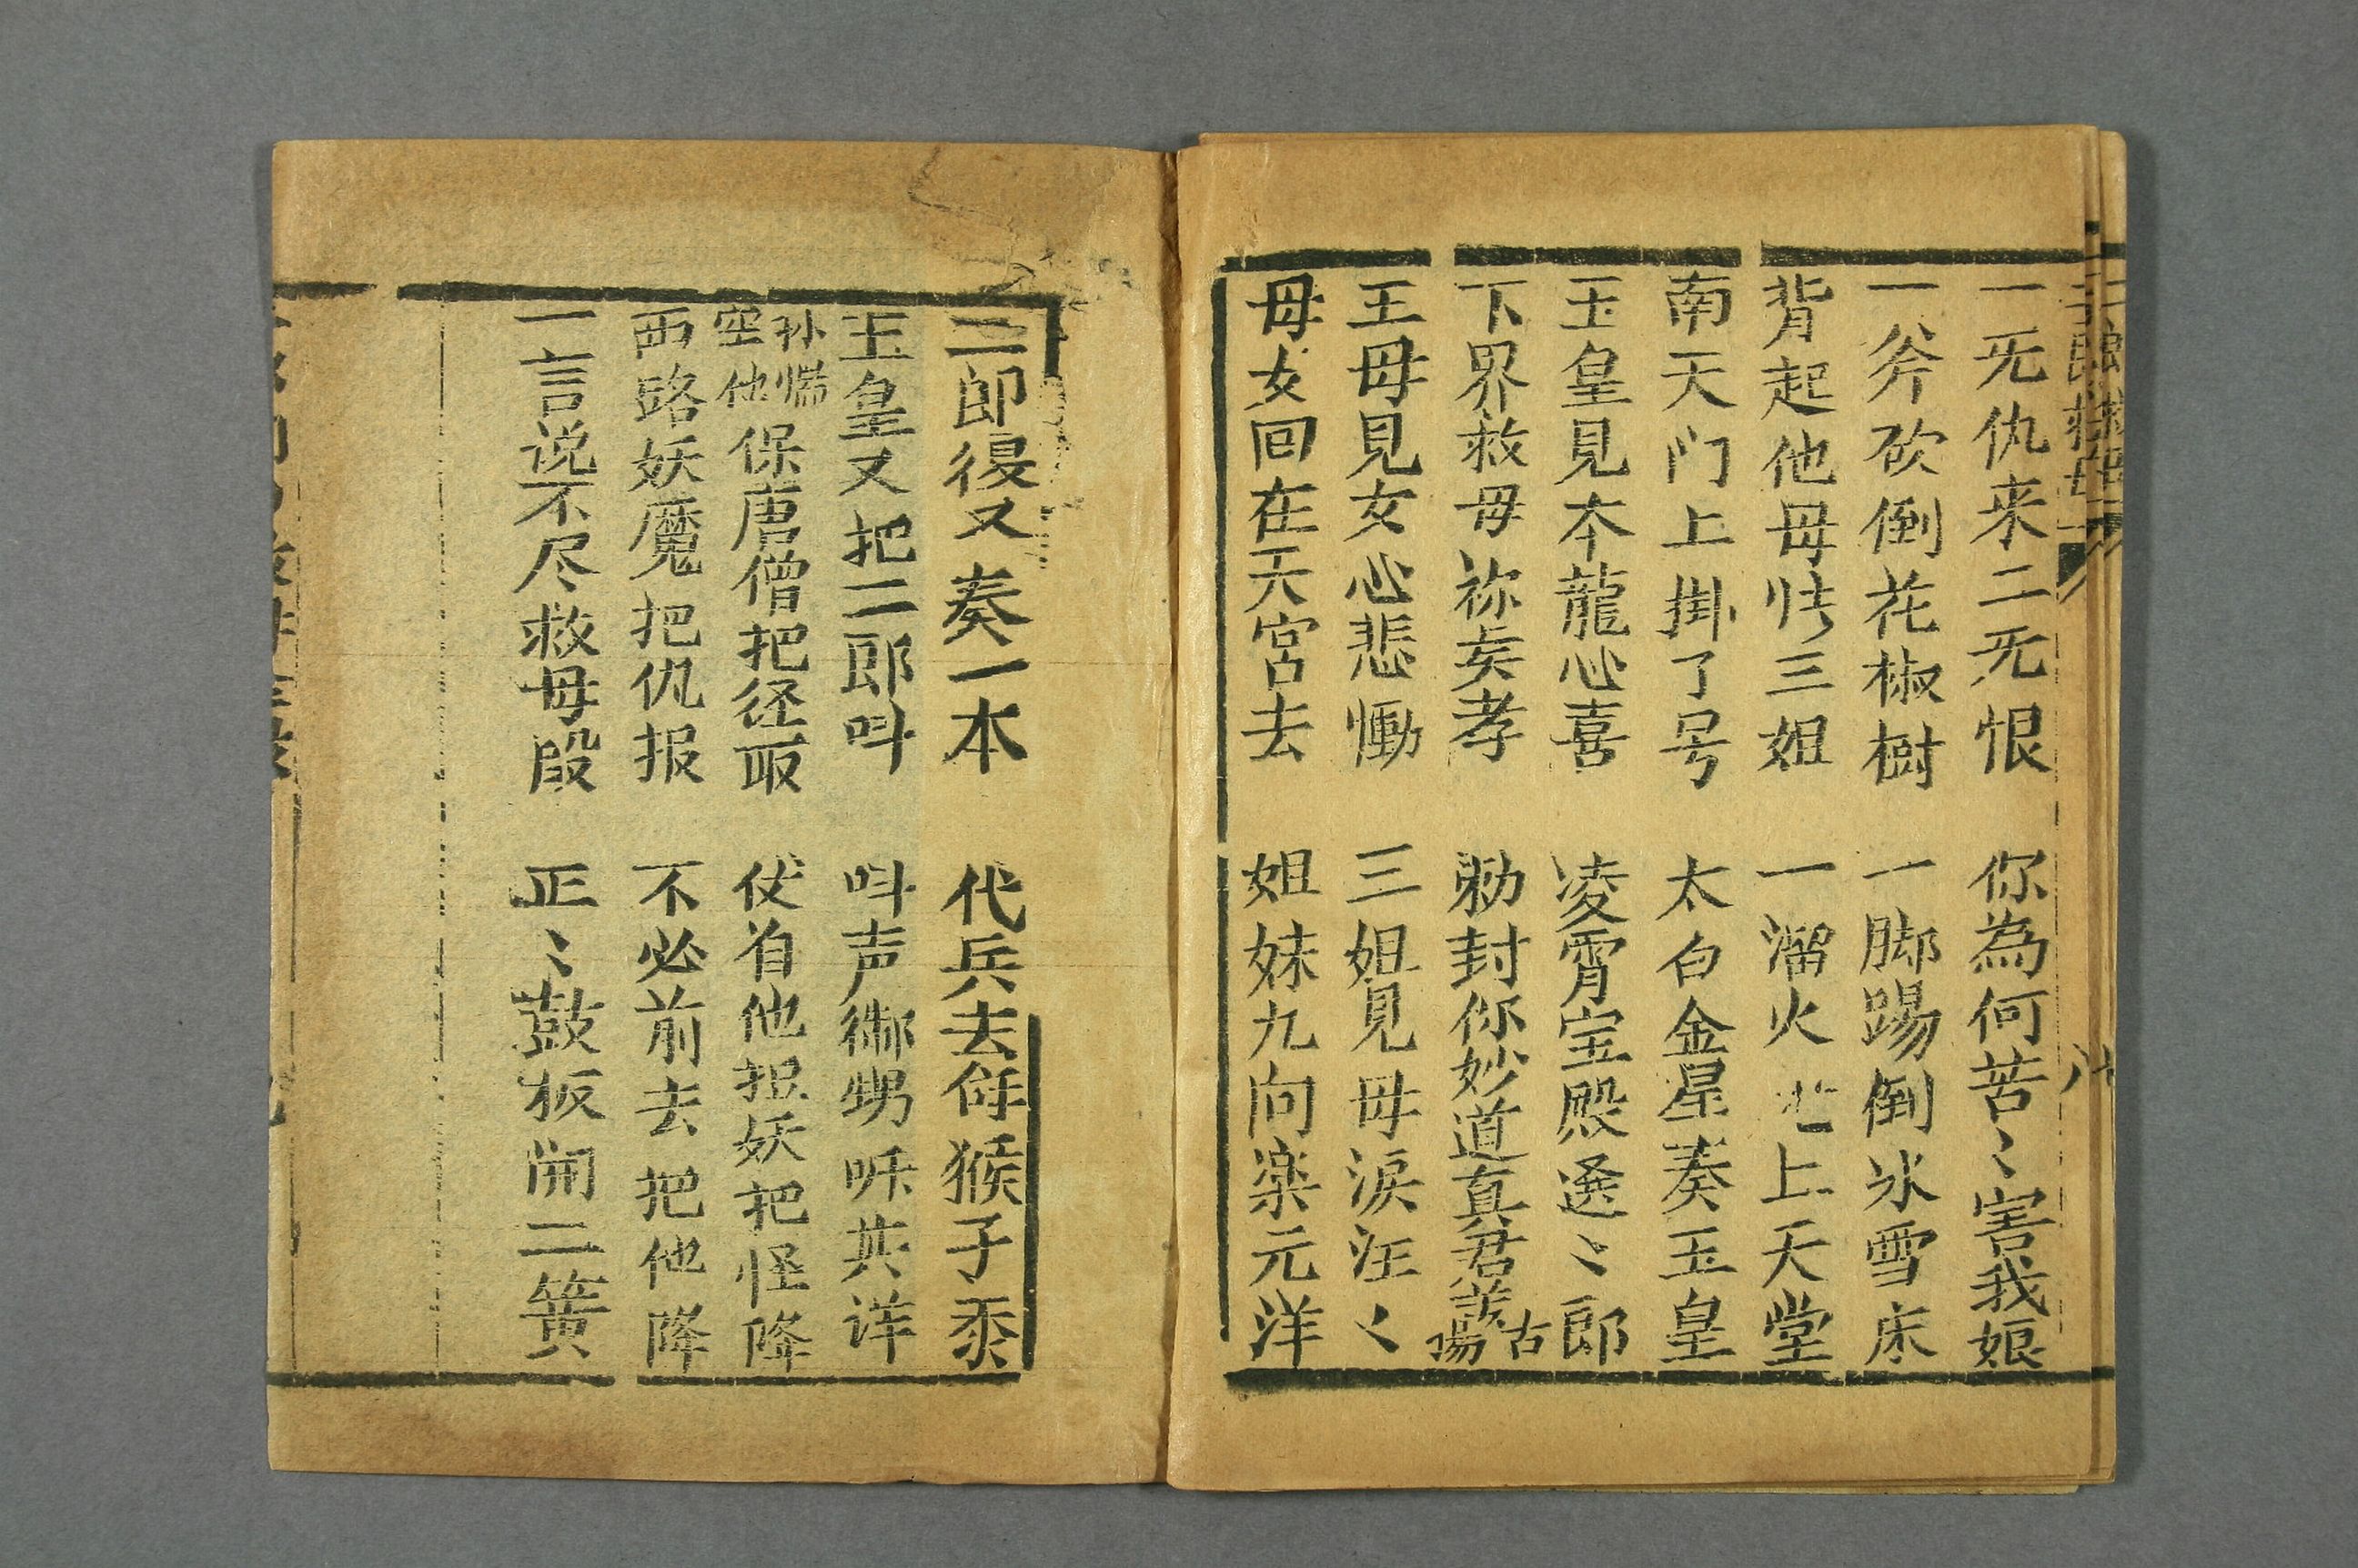 一旡仇来二旡恨 你為何苦〻害我娘
一斧砍倒花椒樹 一脚踢倒氷雪床
背起他母怯三姐 一溜火 上天堂
南天门上掛了号 太白金星奏玉皇
玉皇見本龍心喜 凌霄宝殿选〻郎
下界救母祢矣孝 勅封你妙道真君 古楊
王母見女心悲慟 三姐見母淚汪〻
母女回在天宮去 姐妹九向楽元洋
二郎復又奏一本 代兵去 猴子
玉皇又把二郎呌 呌声御甥听其详
孙悟空他保唐僧把径取 仗着他 妖把怪降
西路妖魔把仇报 不必前去把他降
一言说不尽救母段 正〻鼓板開二簧
二郎救母